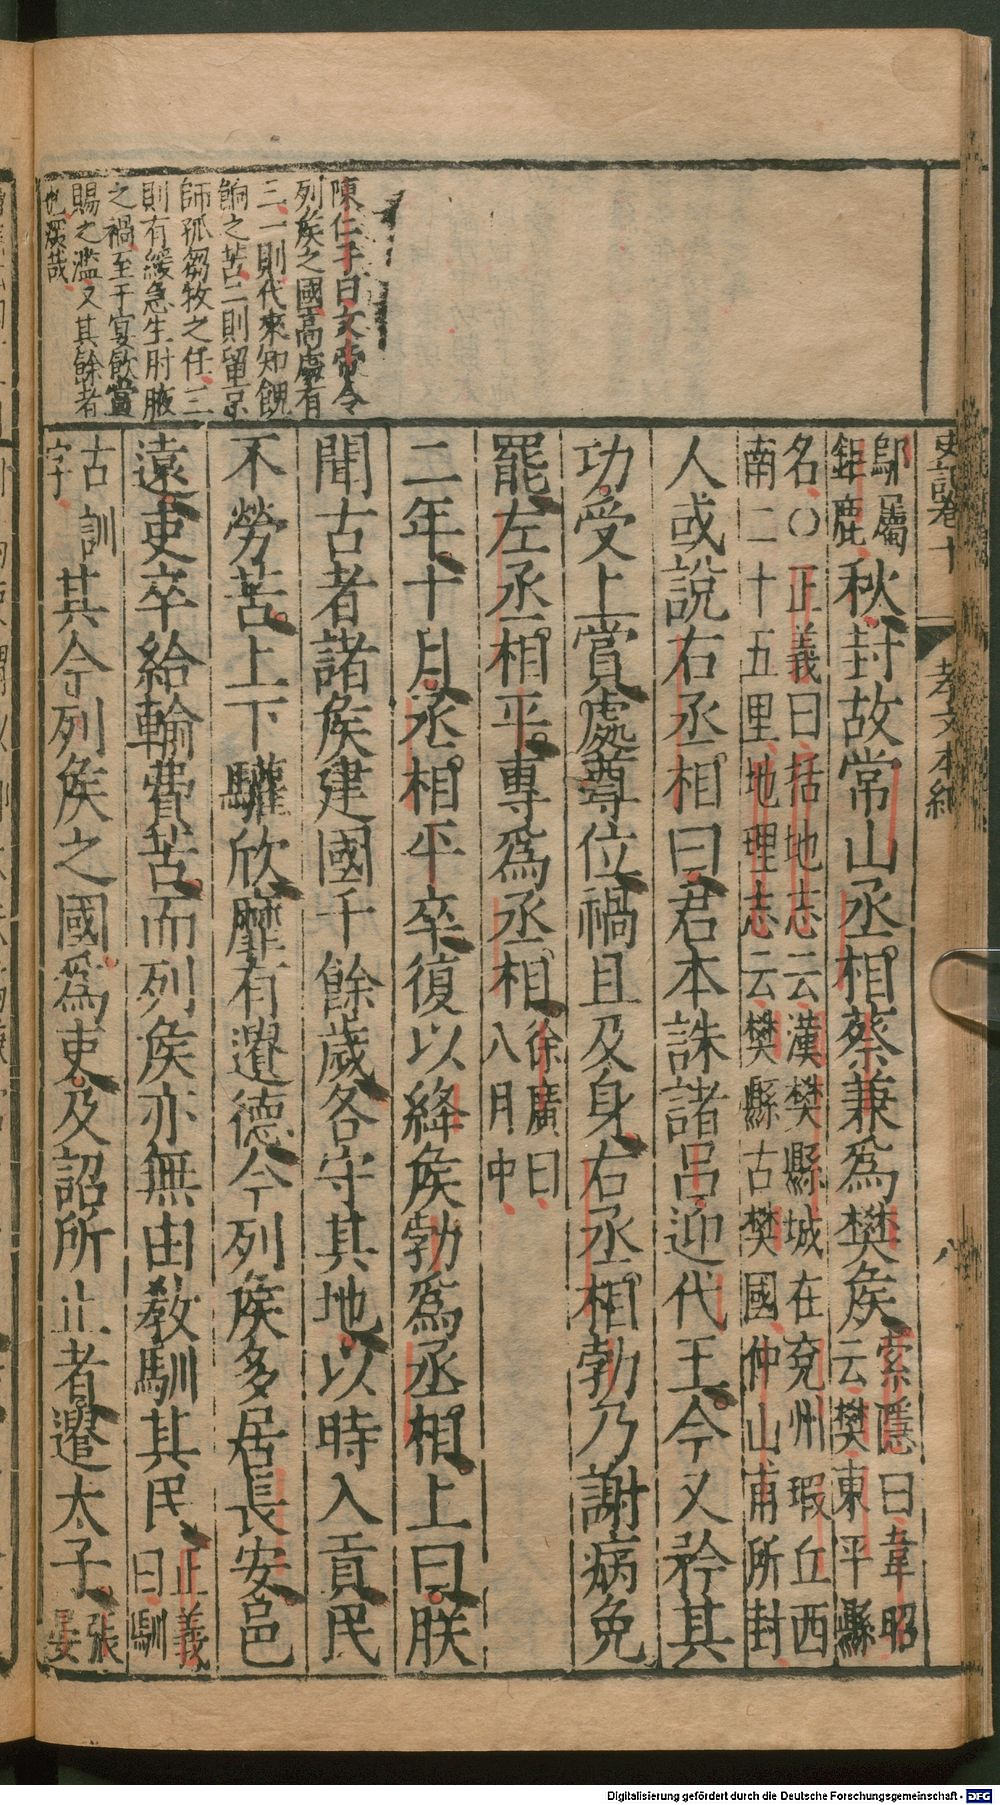 史記卷十 孝文本紀 八
陳仁子曰文帝令
列侯之國高處有
三一則代來知餽
餉之苦二則留京
師孤芻牧之任三
則有緩急生肘腋
之禍至于宴飲當
賜之濫又其餘者
也深哉
鄔屬
鉅鹿
秋封故常山丞相蔡兼爲樊侯
索隱曰韋昭
云樊東平縣
名○正義曰括地志云漢樊縣城在兖州瑕丘西
南二十五里地理志云樊縣古樊國仲山甫所封
人或說右丞相曰君本誅諸呂迎代王今又矜其
功受上賞處尊位禍且及身右丞相勃乃謝病免
罷左丞相平專爲丞相
徐廣曰
八月中
二年十月丞相平卒復以絳侯勃爲丞相上曰朕
聞古者諸侯建國千餘歲各守其地以時入貢民
不勞苦上下驩欣靡有遺德今列侯多居長安邑
遠吏卒給輸費苦而列侯亦無由敎馴其民
正義
曰馴
古訓
字
其令列侯之國爲吏及詔所止者遣太子
張
晏
Digitalisierung gefördert durch die Deutsche Forschungsgemeinschaft - DFG